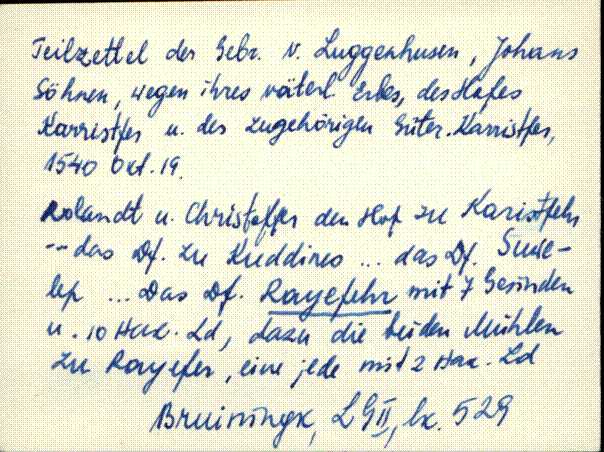 Teilzettel der Gebr. v. Luggenhusen, Johans
Söhnen, wegen ihres väterl. Erbes, des Hofes
Karristfer u. des zugehörigen Güter. Karristfer,
1540 Okt. 19.
Rolandt u. Christoffer den Hof zu Karistfehr
-- das Df. zu Kuddines ... das Df. Suse-
lep ... Das Df. Rayefehr mit 7 Gesinden
u. 10 Hak. Ld, dazu die beiden Mühlen
zu Rayefer, eine jede mit 2 Hak. Ld
Bruiningk, LGII, lk. 529